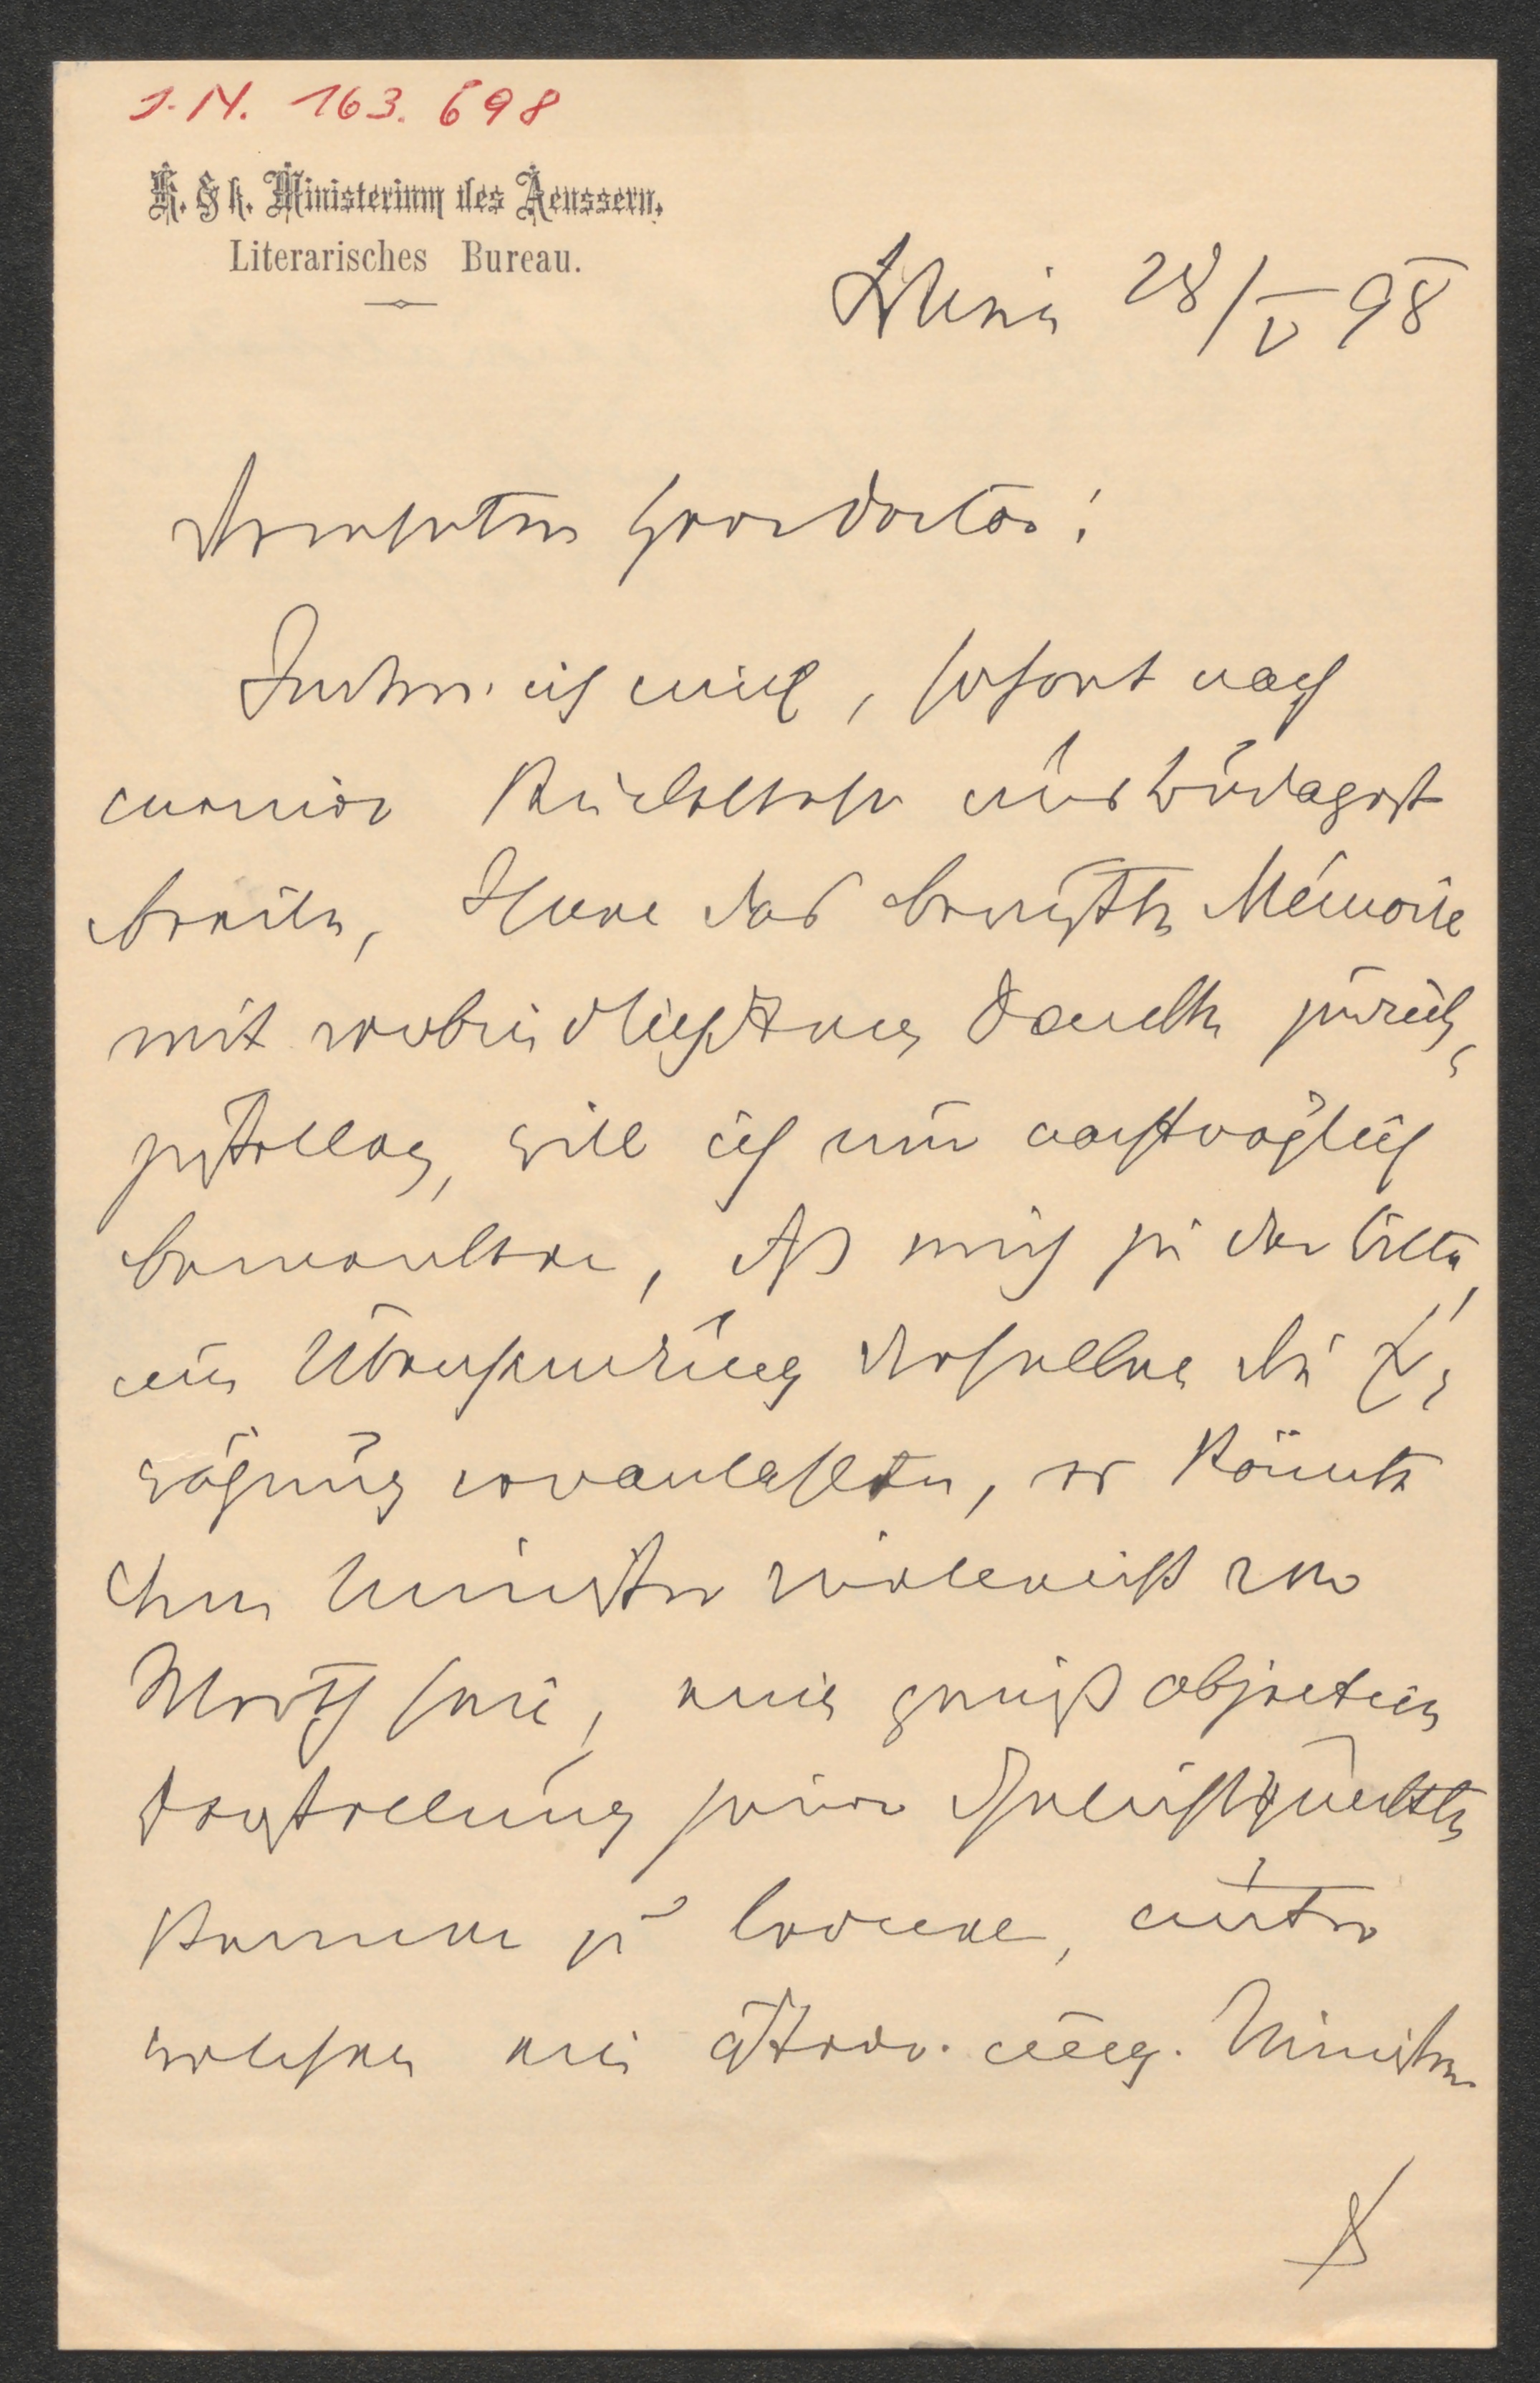 J.N. 163.698
K. & k. Ministerium des Aeussern.
Literarisches Bureau.
Wien 28/V 98
Verehrter Herr Doctor!
Indem ich mich, sofort nach
meiner Rückkehr aus Budapest
beeile, Ihnen das benützte Mémoire
mit verbindlichstem Danke zurück
zustellen, will ich nur nachträglich
bemerken, daß mich zu der Bitte,
um Übersendung desselben die Er-
wägung veranlaßte, es könnte
dem Minister vielleicht von
Werth sein, eine gewiß objective
Darstellung jener
kennen zu lernen, unter
welchen ein österr. ung. Minister